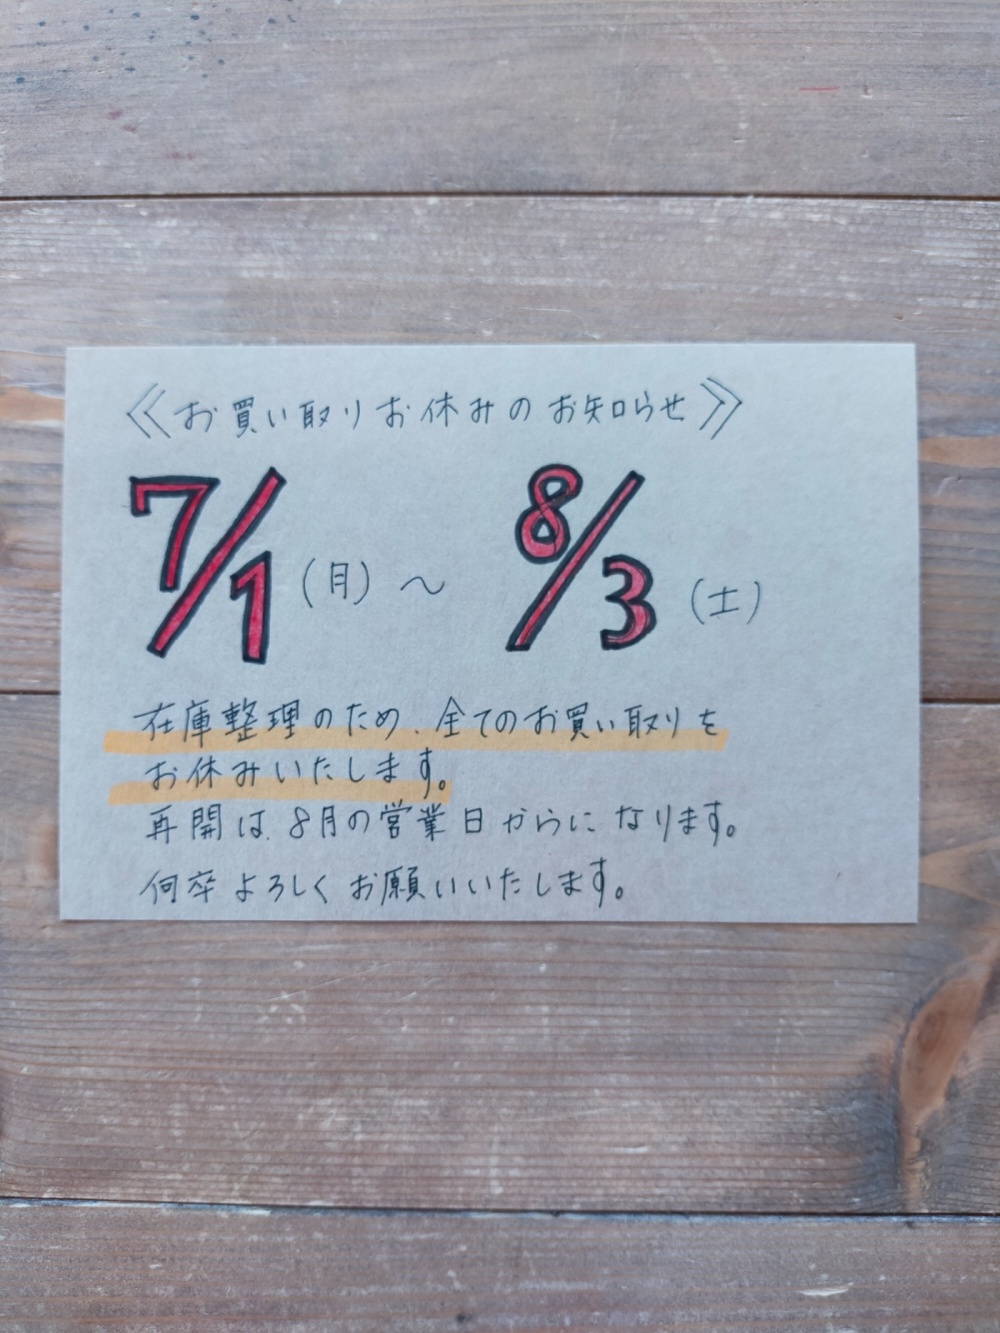 《お買い取りお休みのお知らせ》
7/1(月)〜 8/3(土)
在庫整理のため、全てのお買い取りを
お休みいたします。
再開は、8月の営業日からになります。
何卒よろしくお願いいたします。